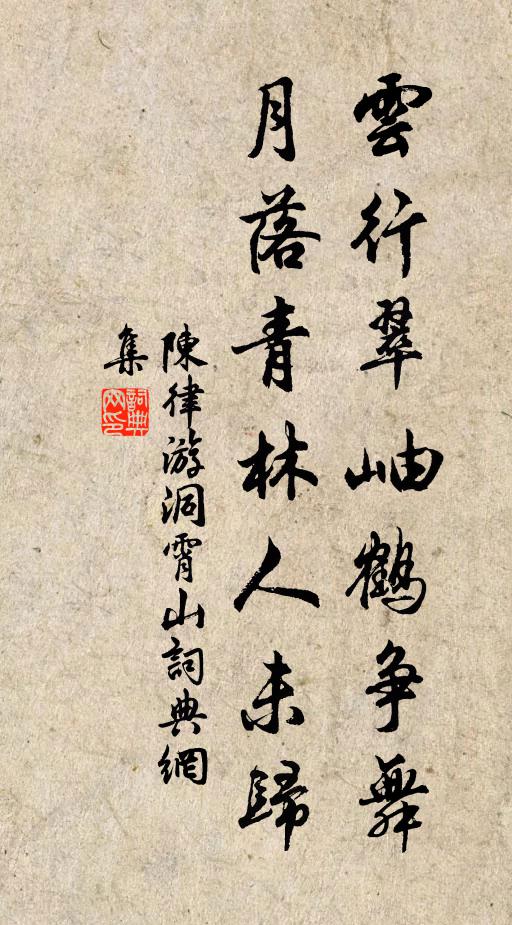 雲行翠岫鶴争舞
月落青林人未歸
陳律游洞霄山詞典網
集
詞典網印